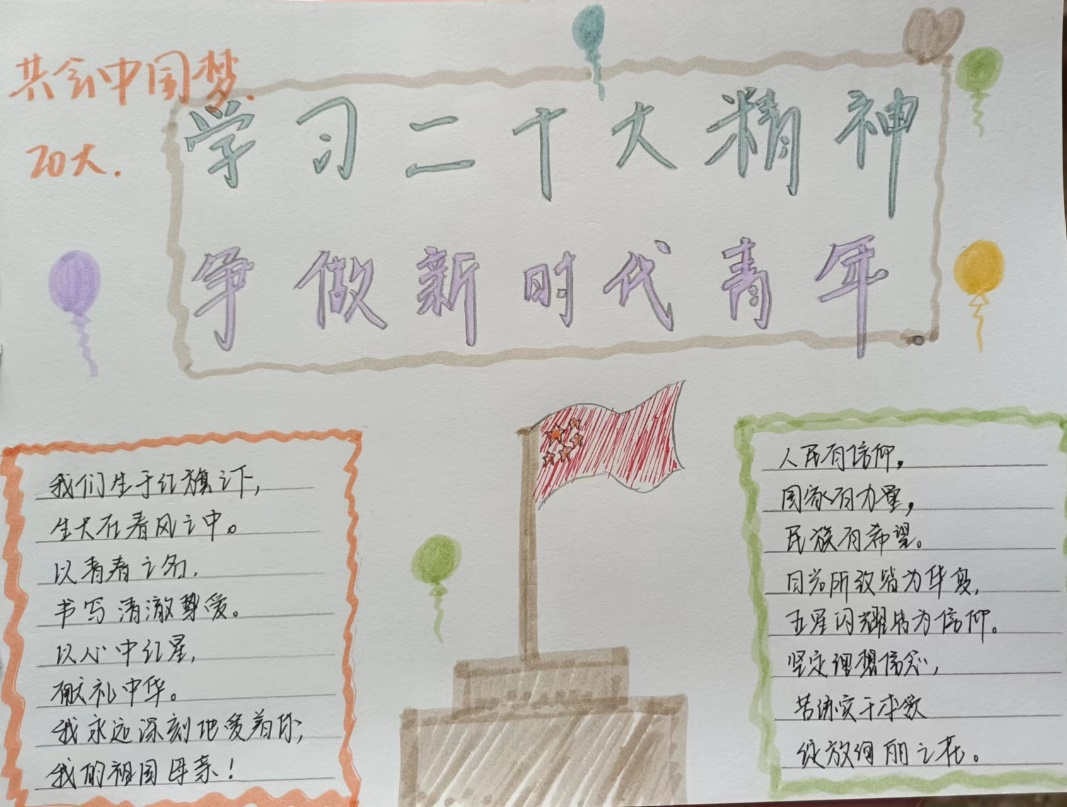 共会中国梦.
20大.
学习二十大精神
争做新时代青年
我们生于红旗之下,
生大在春风之中。
以青春之名,
书写清澈挚爱。
以心中红星,
献礼中华。
我永远深刻地爱着你,
我的祖国母亲!
人民有信仰,
国家有力量,
民族有希望。
目光所致皆为华夏,
五星闪耀皆为信仰。
坚定理想信念,
苦练实干本领
绽放绚丽之花。